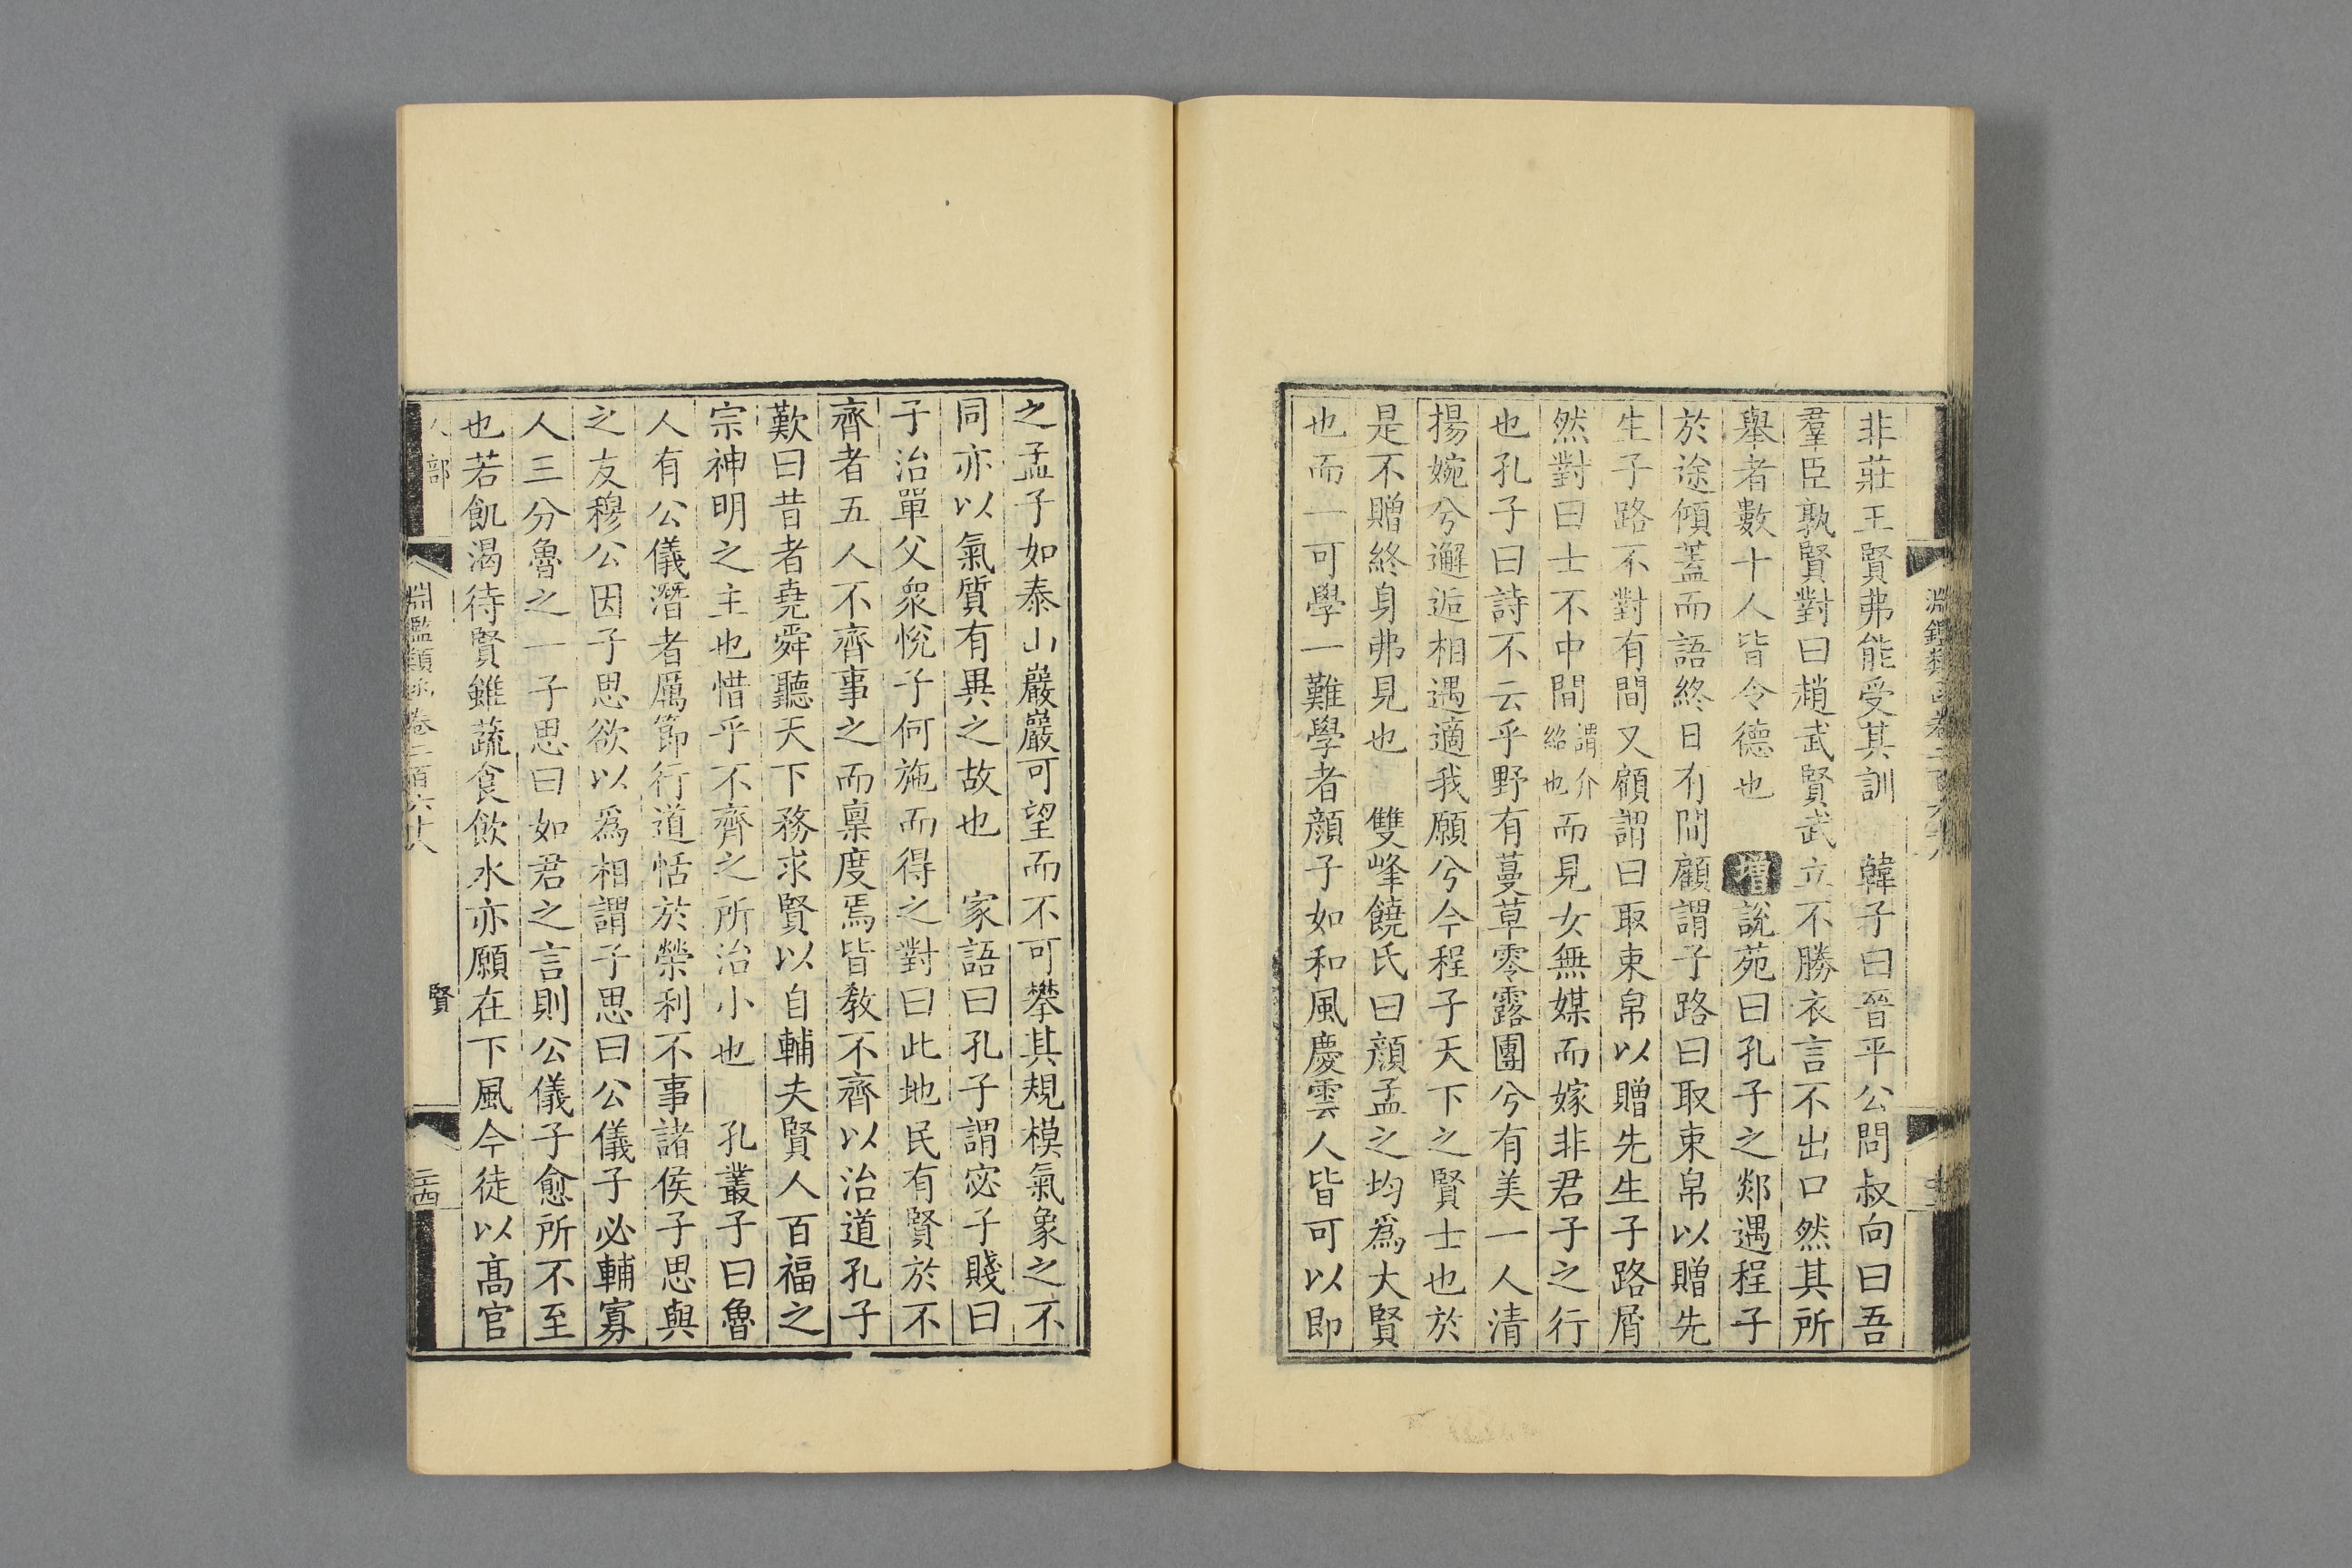 非莊王賢弗能受其訓　韓子曰晉平公問叔向曰吾
羣臣孰賢對曰趙武賢武立不勝衣言不出口然其所
舉者數十人皆令德也　增說苑曰孔子之郯遇程子
於途傾蓋而語終日有間顧謂子路曰取束帛以贈先
生子路不對有間又顧謂曰取束帛以贈先生子路屑
然對曰士不中間謂介紹也而見女無媒而嫁非君子之行
也孔子曰詩不云乎野有蔓草零露團兮有美一人清
揚婉兮邂逅相遇適我願兮今程子天下之賢士也於
是不贈終身弗見也　雙峰饒氏曰顏孟之均爲大賢
也而一可學一難學者顏子如和風慶雲人皆可以即
之孟子如泰山巖巖可望而不可攀其規模氣象之不
同亦以氣質有異之故也　家語曰孔子謂宓子賤曰
子治單父衆悅子何施而得之對曰此地民有賢於不
齊者五人不齊事之而稟度焉皆敎不齊以治道孔子
歎曰昔者堯舜聽天下務求賢以自輔夫賢人百福之
宗神明之主也惜乎不齊之所治小也　孔叢子曰魯
人有公儀潛者厲節行道恬於榮利不事諸侯子思與
之友穆公因子思欲以爲相謂子思曰公儀子必輔寡
人三分魯之一子思曰如君之言則公儀子愈所不至
也若飢渴待賢雖蔬食飲水亦願在下風今徒以高官
人部　淵鑑類函卷二百六十八　賢　二十四